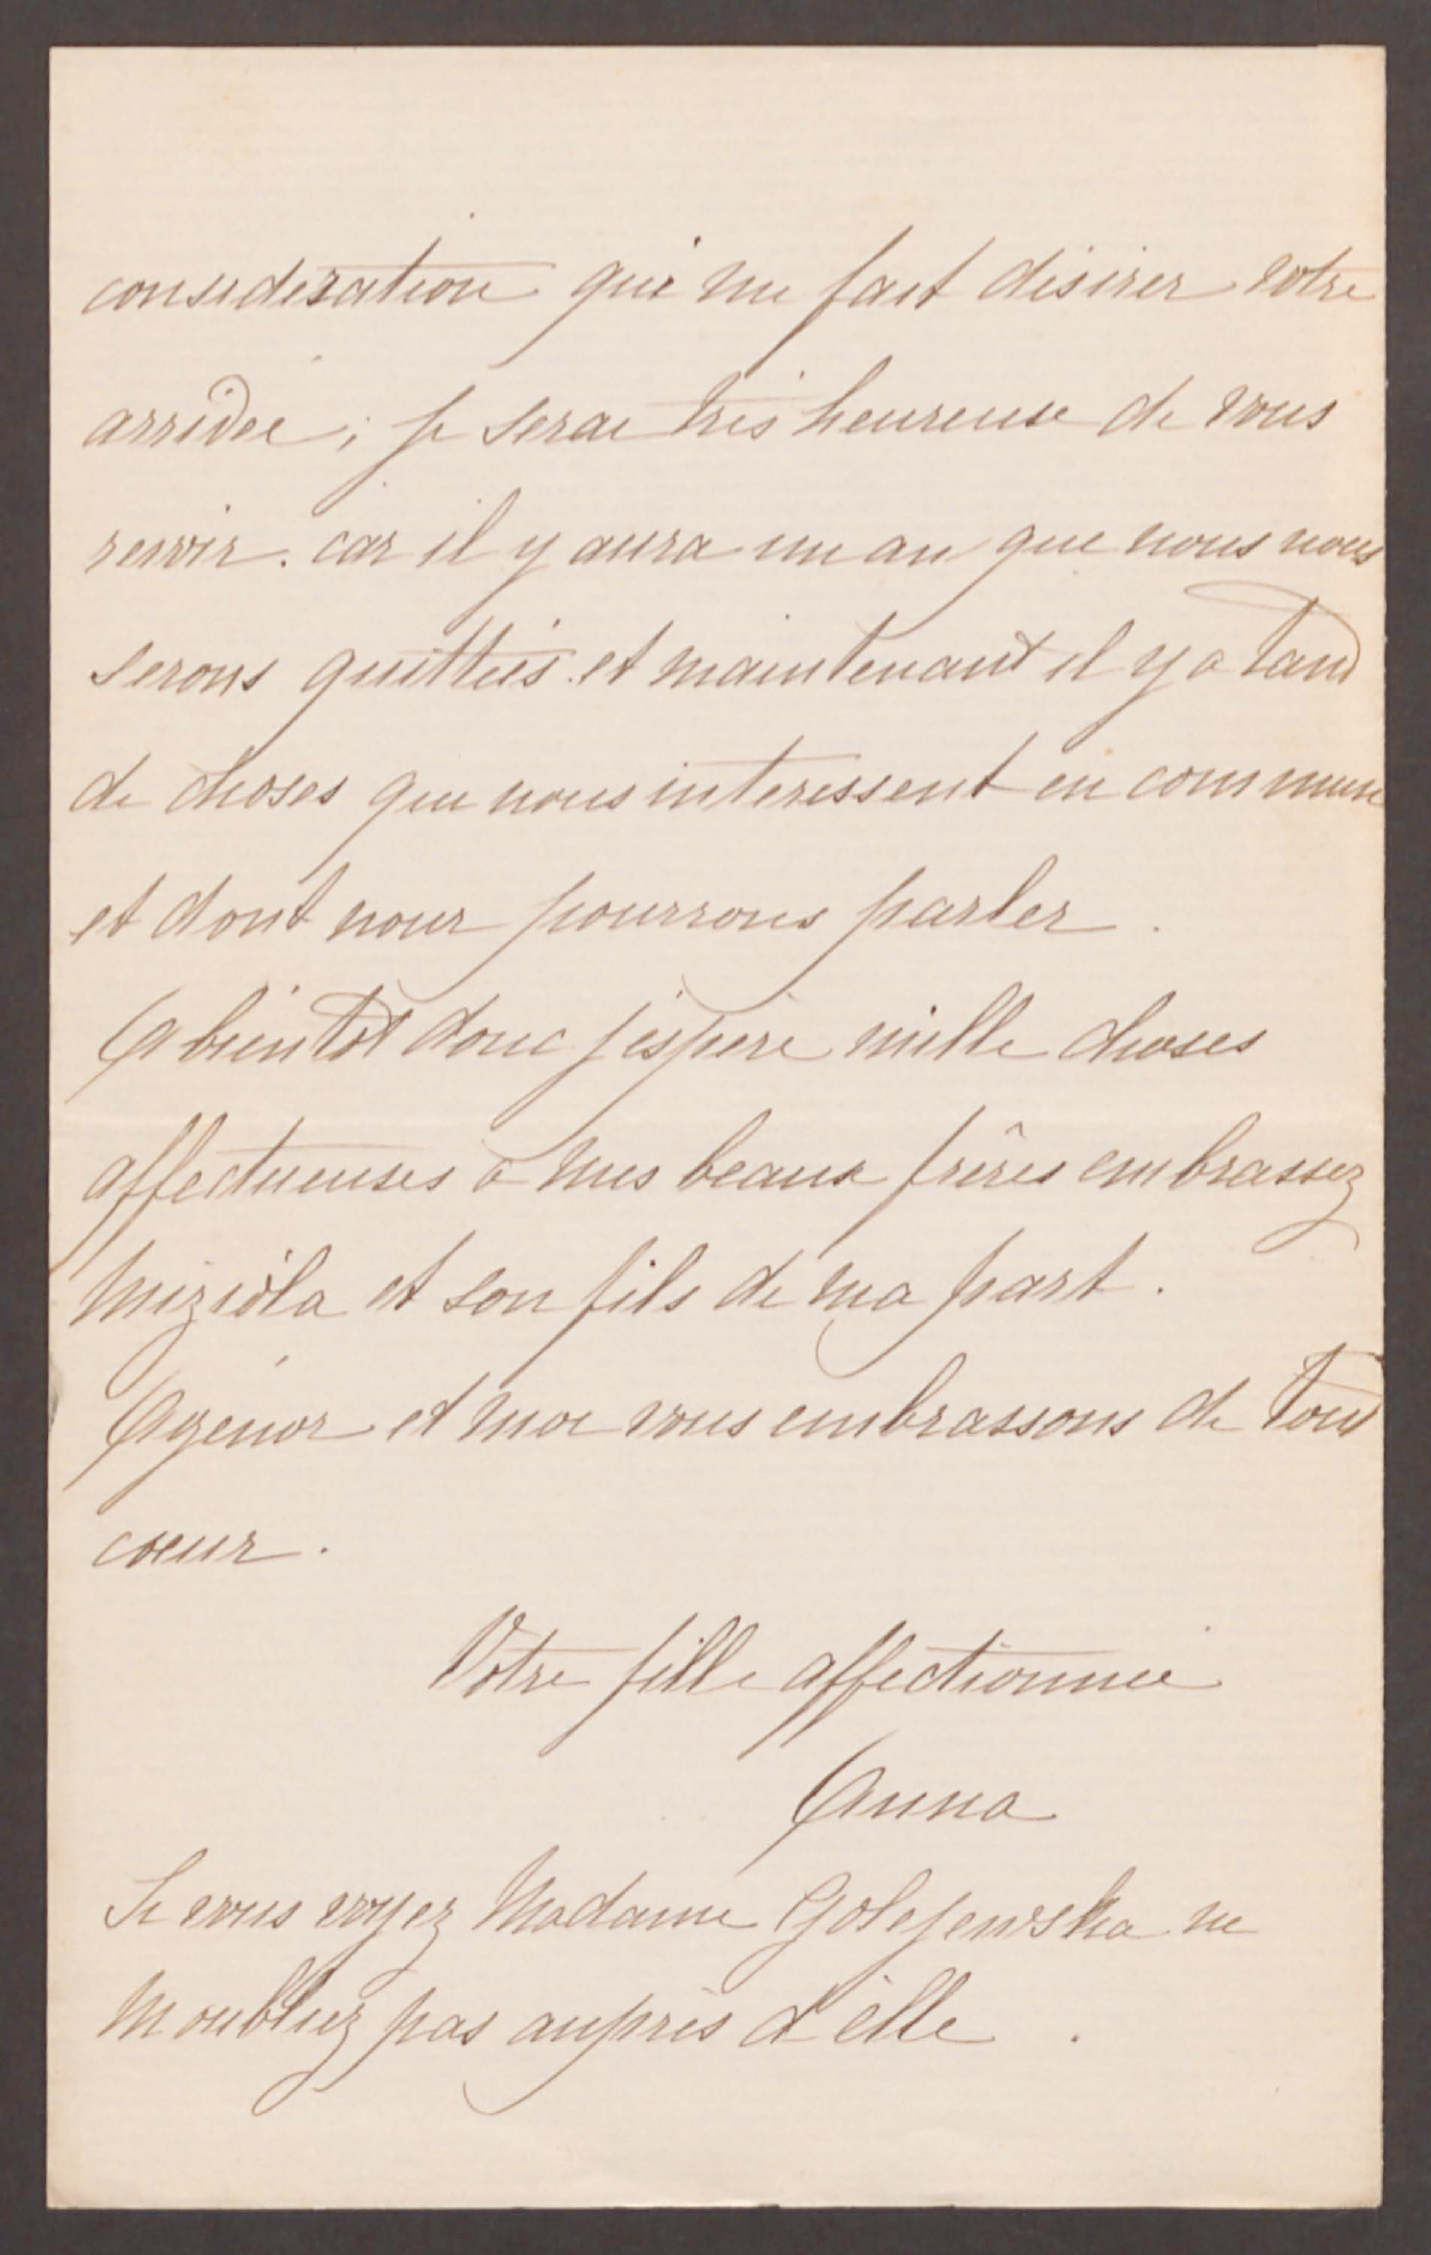 consideration qui me fait désirer votre
arrivée ; je serai très heureuse de vous
revoir. car il y aura un an que nous nous
serons quittés et maintenant il y a tant
de choses que nous interessent en commun
et dont nous pourrons parler.
A bientôt donc j'espère mille choses
affectueuses à mes beaux frêres embrassez
Miziola et son fils de ma part.
Agénor et moi vous embrassons de tout
coeur.
Votre fille affectionnée
Anna
Si vous voyez Madame Golejewska ne
m'oubliez pas auprès d'elle.